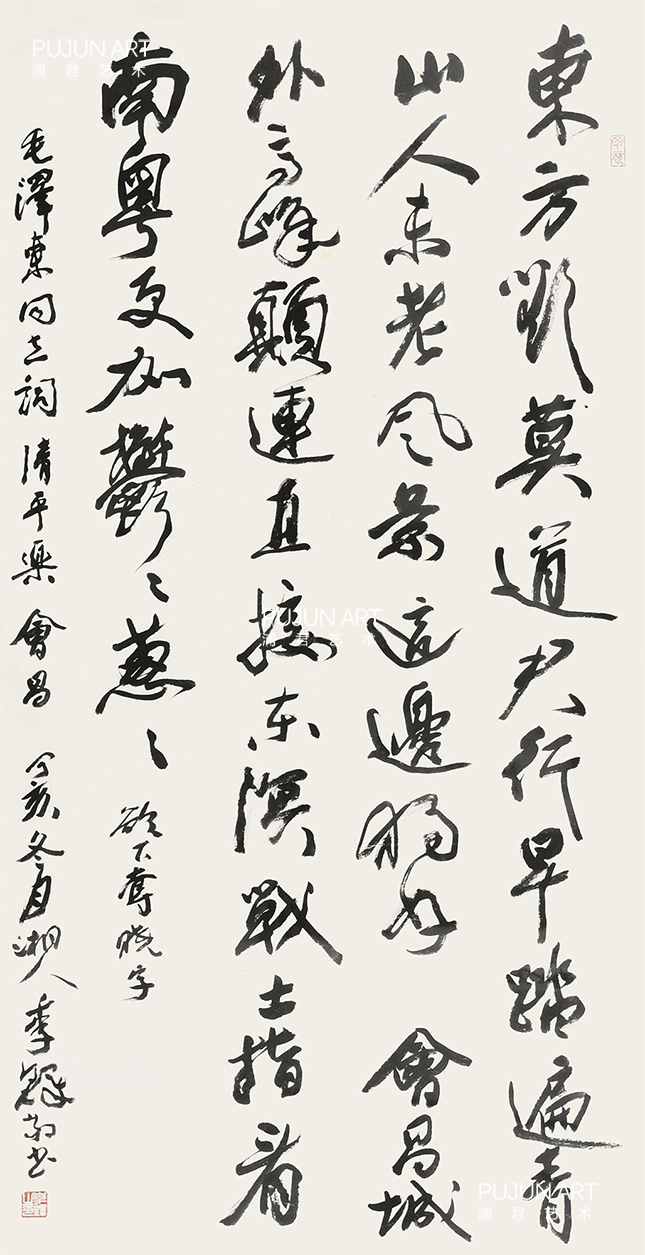 東方欲莫道君行早踏遍青
山人未老风景這邊獨好 會昌城
外高峰顛連直接东溟戰士指看
南粤更加鬱〻蔥〻 欲下奪曉字
毛澤東同志詞 清平樂 會昌 丁亥冬月湘人李鐸敬书
PUJUN ART
浦君艺术
PUJUN ART
浦君艺术
PUJUN ART
浦君艺术